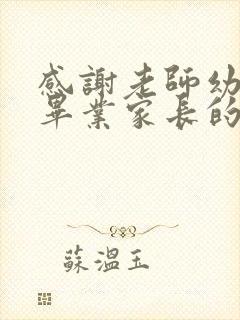 感謝老師幼
畢業家長的
蘇溫玉